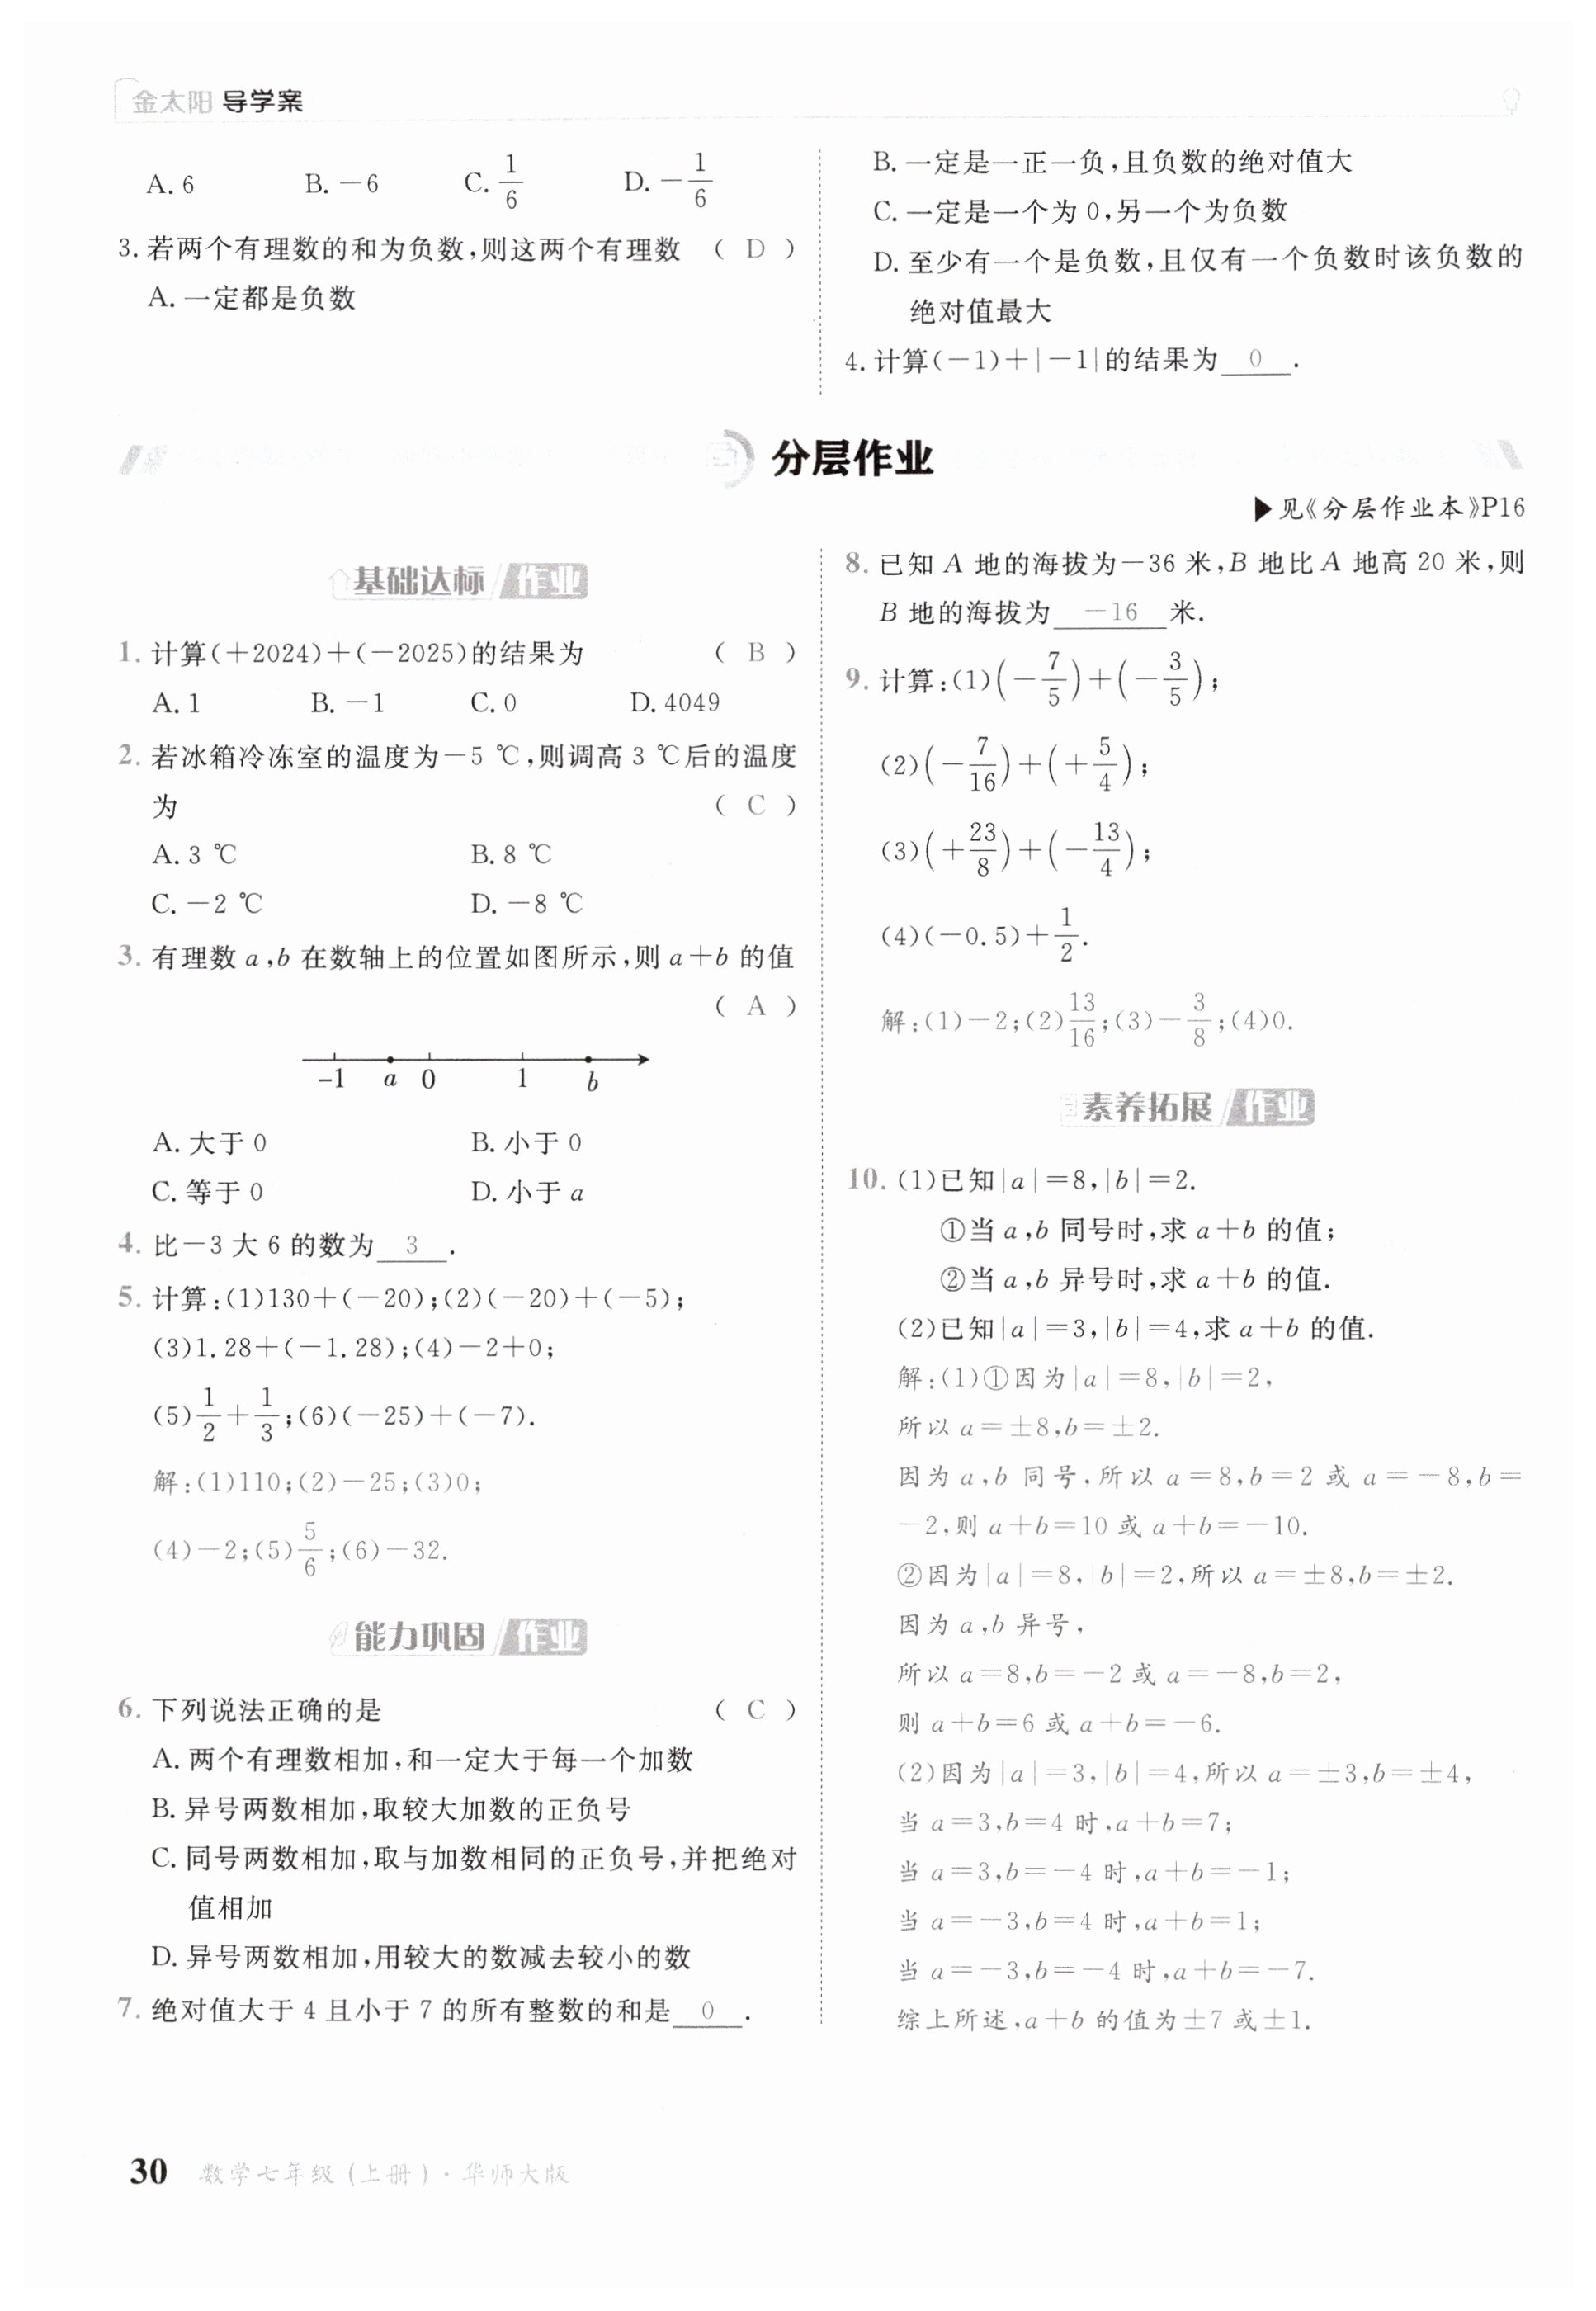 金太阳 导学案
A. 6 B. －6 C. 1/6 D. －1/6
3. 若两个有理数的和为负数,则这两个有理数 ( D )
A. 一定都是负数
B. 一定是一正一负,且负数的绝对值大
C. 一定是一个为 0,另一个为负数
D. 至少有一个是负数,且仅有一个负数时该负数的
绝对值最大
4. 计算(－1)＋|－1|的结果为 0 .
分层作业
▶见《分层作业本》P16
基础达标 作业
1. 计算(＋2024)＋(－2025)的结果为 ( B )
A. 1 B. －1 C. 0 D. 4049
2. 若冰箱冷冻室的温度为－5 ℃,则调高 3 ℃后的温度
为 ( C )
A. 3 ℃ B. 8 ℃
C. －2 ℃ D. －8 ℃
3. 有理数 a,b 在数轴上的位置如图所示,则 a＋b 的值
( A )
－1 a 0 1 b
A. 大于 0 B. 小于 0
C. 等于 0 D. 小于 a
4. 比－3 大 6 的数为 3 .
5. 计算:(1)130＋(－20);(2)(－20)＋(－5);
(3)1.28＋(－1.28);(4)－2＋0;
(5)1/2＋1/3;(6)(－25)＋(－7).
解:(1)110;(2)－25;(3)0;
(4)－2;(5)5/6;(6)－32.
能力巩固 作业
6. 下列说法正确的是 ( C )
A. 两个有理数相加,和一定大于每一个加数
B. 异号两数相加,取较大加数的正负号
C. 同号两数相加,取与加数相同的正负号,并把绝对
值相加
D. 异号两数相加,用较大的数减去较小的数
7. 绝对值大于 4 且小于 7 的所有整数的和是 0 .
8. 已知 A 地的海拔为－36 米,B 地比 A 地高 20 米,则
B 地的海拔为 －16 米.
9. 计算:(1)(－7/5)＋(－3/5);
(2)(－7/16)＋(＋5/4);
(3)(＋23/8)＋(－13/4);
(4)(－0.5)＋1/2.
解:(1)－2;(2)13/16;(3)－3/8;(4)0.
素养拓展 作业
10. (1)已知|a|＝8,|b|＝2.
①当 a,b 同号时,求 a＋b 的值;
②当 a,b 异号时,求 a＋b 的值.
(2)已知|a|＝3,|b|＝4,求 a＋b 的值.
解:(1)①因为|a|＝8,|b|＝2,
所以 a＝±8,b＝±2.
因为 a,b 同号,所以 a＝8,b＝2 或 a＝－8,b＝
－2,则 a＋b＝10 或 a＋b＝－10.
②因为|a|＝8,|b|＝2,所以 a＝±8,b＝±2.
因为 a,b 异号,
所以 a＝8,b＝－2 或 a＝－8,b＝2,
则 a＋b＝6 或 a＋b＝－6.
(2)因为|a|＝3,|b|＝4,所以 a＝±3,b＝±4,
当 a＝3,b＝4 时,a＋b＝7;
当 a＝3,b＝－4 时,a＋b＝－1;
当 a＝－3,b＝4 时,a＋b＝1;
当 a＝－3,b＝－4 时,a＋b＝－7.
综上所述,a＋b 的值为±7 或±1.
30 数学七年级(上册)·华师大版